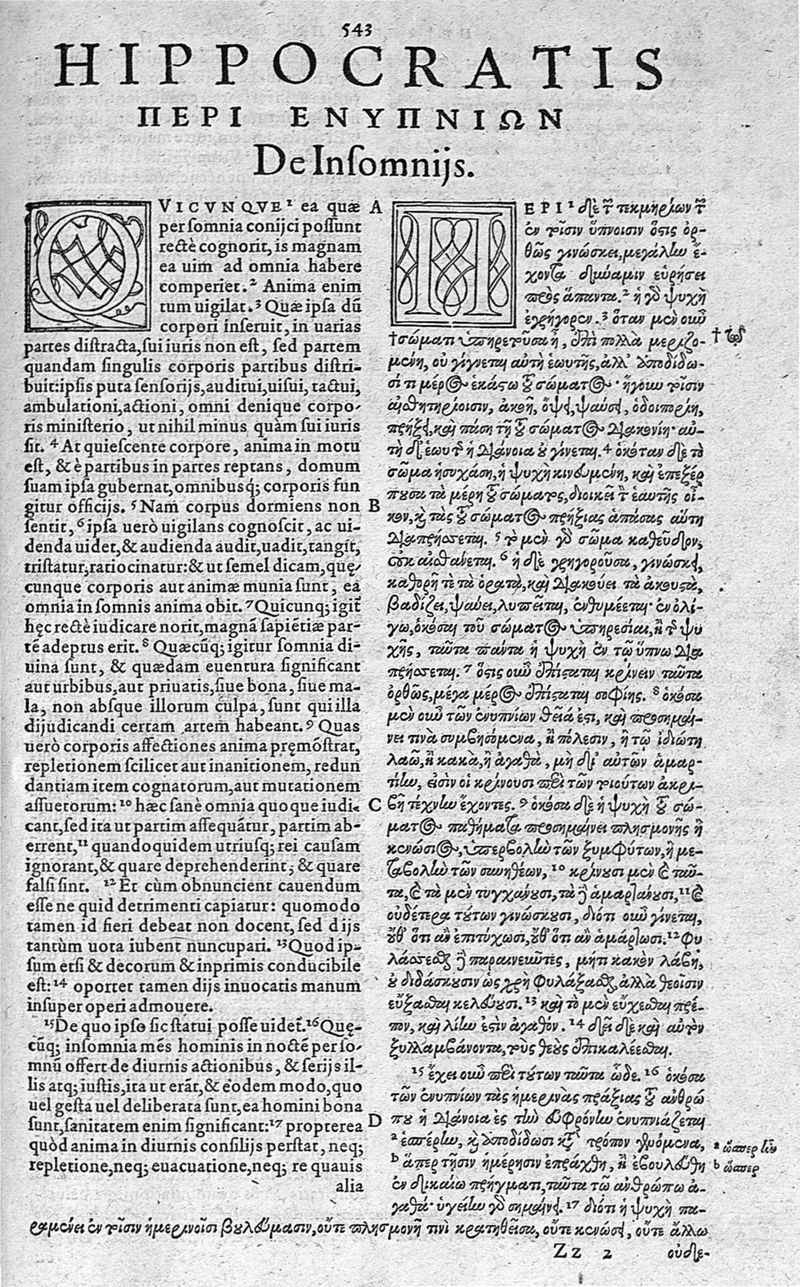 543
HIPPOCRATIS
ΠΕΡΙ ΕΝΥΠΝΙΩΝ
De Insomnijs.
QVICVNQVE¹ ea quæ
per somnia conijci possunt
rectè cognorit, is magnam
ea uim ad omnia habere
comperiet.² Anima enim
tum uigilat.³ Quæ ipsa dū
corpori inseruit, in uarias
partes distracta, sui iuris non est, sed partem
quandam singulis corporis partibus distri-
buit: ipsis puta sensorijs, auditui, uisui, tactui,
ambulationi, actioni, omni denique corpo-
ris ministerio, ut nihil minus quàm sui iuris
sit. ⁴ At quiescente corpore, anima in motu
est, & è partibus in partes reptans, domum
suam ipsa gubernat, omnibusq; corporis fun
gitur officijs. ⁵ Nam corpus dormiens non
sentit, ⁶ ipsa uerò uigilans cognoscit, ac ui-
denda uidet, & audienda audit, uadit, tangit,
tristatur, ratiocinatur: & ut semel dicam, quę-
cunque corporis aut animæ munia sunt, ea
omnia in somnis anima obit. ⁷ Quicunq; igit̃
hęc rectè iudicare norit, magnā sapiētiæ par-
tē adeptus erit. ⁸ Quæcūq; igitur somnia di-
uina sunt, & quædam euentura significant
aut urbibus, aut priuatis, siue bona, siue ma-
la, non absque illorum culpa, sunt qui illa
dijudicandi certam artem habeant. ⁹ Quas
uerò corporis affectiones anima pręmōstrat,
repletionem scilicet aut inanitionem, redun
dantiam item cognatorum, aut mutationem
assuetorum: ¹⁰ hæc sanè omnia quoque iudi-
cant, sed ita ut partim assequātur, partim ab-
errent, ¹¹ quandoquidem utriusq; rei causam
ignorant, & quare deprehenderint, & quare
falsi sint. ¹² Et cùm obnuncient cauendum
esse ne quid detrimenti capiatur: quomodo
tamen id fieri debeat non docent, sed dijs
tantùm uota iubent nuncupari. ¹³ Quod ip-
sum etsi & decorum & inprimis conducibile
est: ¹⁴ oportet tamen dijs inuocatis manum
insuper operi admouere.
¹⁵ De quo ipso sic statui posse uidet̃. ¹⁶ Quę-
cūq; insomnia mēs hominis in noctē per so-
mnū offert de diurnis actionibus, & serijs il-
lis atq; iustis, ita ut erāt, & eodem modo, quo
uel gesta uel deliberata sunt, ea homini bona
sunt, sanitatem enim significant: ¹⁷ propterea
quòd anima in diurnis consilijs perstat, neq;
repletione, neq; euacuatione, neq; re quauis
alia
A
B
C
D
ΠΕΡΙ ¹ δὲ τῶν τεκμηρίων τῶν
ἐν τοῖσιν ὕπνοισιν ὅστις ὀρ-
θῶς γινώσκει, μεγάλην ἔ-
χοντα δύναμιν εὑρήσει
πρὸς ἅπαντα. ² ἡ γὰρ ψυχὴ
ἐγρήγορεν. ³ ὅταν μὲν οὖν
†σώματι ὑπηρετοῦσα ᾖ, ἐπὶ πολλὰ μεριζο-
μένη, οὐ γίγνεται αὐτὴ ἑωυτῆς, ἀλλ' ἀποδίδω-
σί τι μέρος ἑκάστῳ τοῦ σώματος· ἤγουν τοῖσιν
αἰσθητηρίοισιν, ἀκοῇ, ὄψει, ψαύσει, ὁδοιπορίῃ,
πρήξει, καὶ πάσῃ τῇ τοῦ σώματος διακονίῃ· αὐ-
τὴ δὲ ἑωυτῆς ἡ διάνοια οὐ γίνεται. ⁴ ὁκόταν δὲ τὸ
σῶμα ἡσυχάσῃ, ἡ ψυχὴ κινευμένη, καὶ ἐπεξέρ
πουσα τὰ μέρη τοῦ σώματος, διοικεῖ τὸν ἑαυτῆς οἶ-
κον, καὶ τὰς τοῦ σώματος πρήξιας ἁπάσας αὕτη
διαπρήσσεται. ⁵ τὸ μὲν γὰρ σῶμα καθεῦδον,
οὐκ αἰσθάνεται. ⁶ ἡ δὲ γρηγοροῦσα, γινώσκει,
καθορῇ τε τὰ ὁρατὰ, καὶ διακούει τὰ ἀκουστὰ,
βαδίζει, ψαύει, λυπεῖται, ἐνθυμέεται· ἐν ὀλί-
γῳ, ὁκόσαι τοῦ σώματος ὑπηρεσίαι, ἢ τῆς ψυ
χῆς, ταῦτα πάντα ἡ ψυχὴ ἐν τῷ ὕπνῳ δια
πρήσσεται. ⁷ ὅστις οὖν ἐπίσταται κρίνειν ταῦτα
ὀρθῶς, μέγα μέρος ἐπίσταται σοφίης. ⁸ ὁκόσα
μὲν οὖν τῶν ἐνυπνίων θεῖά ἐστι, καὶ προσημαί-
νει τινὰ συμβησόμενα, ἢ πόλεσιν, ἢ τῷ ἰδιώτῃ
λαῷ, ἢ κακὰ, ἢ ἀγαθὰ, μὴ δι' αὐτῶν ἁμαρ-
τίην, εἰσὶν οἱ κρίνουσι περὶ τῶν τοιούτων ἀκρι-
βῆ τέχνην ἔχοντες. ⁹ ὁκόσα δὲ ἡ ψυχὴ τοῦ σώ-
ματος παθήματα προσημαίνει πλησμονῆς ἢ
κενώσιος, ὑπερβολὴν τῶν ξυμφύτων, ἢ με-
ταβολὴν τῶν συνηθέων, ¹⁰ κρίνουσι μὲν καὶ ταῦ-
τα, καὶ τὰ μὲν τυγχάνουσι, τὰ δὲ ἁμαρτάνουσι, ¹¹ καὶ
οὐδέτερα τούτων γινώσκουσι, διότι οὖν γίνεται,
οὔθ' ὅτι ἂν ἐπιτύχωσι, οὔθ' ὅτι ἂν ἁμάρτωσι. ¹² φυ
λάσσεσθαι δὲ παραινεῦντες, μή τι κακὸν λάβῃ,
οὐ διδάσκουσιν ὡς χρὴ φυλάξασθαι, ἀλλὰ θεοῖσιν
εὔξασθαι κελεύουσι. ¹³ καὶ τὸ μὲν εὔχεσθαι πρέ-
πον, καὶ λίην ἐστὶν ἀγαθόν. ¹⁴ δεῖ δὲ καὶ αὐτὸν
ξυλλαμβάνοντα, τοὺς θεοὺς ἐπικαλέεσθαι.
¹⁵ ἔχει οὖν περὶ τούτων ταῦτα ὧδε. ¹⁶ ὁκόσα
τῶν ἐνυπνίων τὰς ἡμερινὰς πρήξιας τοῦ ἀνθρώ
που ἡ διάνοια ἐς τὴν εὐφρόνην ἐνυπνιάζεται
ᵃ ἑσπέρην, καὶ ἀποδίδωσι κατὰ τρόπον γενόμενα,
ᵇ ἅπερ τῇσιν ἡμέρῃσιν ἐπράχθη, ἢ ἐβουλεύθη
ἐν δικαίῳ πρήγματι, ταῦτα τῷ ἀνθρώπῳ ἀ-
γαθά· ὑγείην γὰρ σημαίνει. ¹⁷ διότι ἡ ψυχὴ πα-
ραμένει ἐν τοῖσιν ἡμερινοῖσι βουλεύμασιν, οὔτε πλησμονῇ τινὶ κρατηθεῖσα, οὔτε κενώσει, οὔτε ἄλλῳ
† τῷ
a ὥσπερ ἦν
b ὥσπερ
Zz 2 οὐδε-